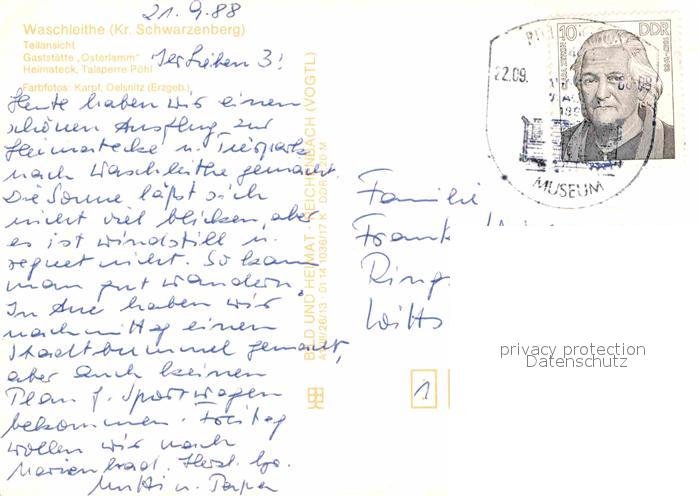 21.9.88
Waschleithe (Kr. Schwarzenberg)
Teilansicht
Gaststätte „Osterlamm"
Heimateck, Talsperre Pöhl
Farbfotos: Karpf, Oelsnitz (Erzgeb.)
Ihr Lieben 3!
Heute haben wir einen
schönen Ausflug zur
Heimatecke u. Tierpark
nach Waschleithe gemacht.
Die Sonne läßt sich
nicht viel blicken, aber
es ist windstill u.
regnet nicht. So kann
man gut wandern.
In Aue haben wir
nachmittag einen
Stadtbummel gemacht,
aber auch keinen
Plan f. Sportwagen
bekommen. Freitag
wollen wir nach
Marienbad. Herzl. Gr.
Mutti u. Papa
BILD UND HEIMAT, REICHENBACH (VOGTL)
01 14 1036/17 K DDR
10
DDR
22.09.
MUSEUM
Familie
Frank
Ring
Witts
1
privacy protection
Datenschutz